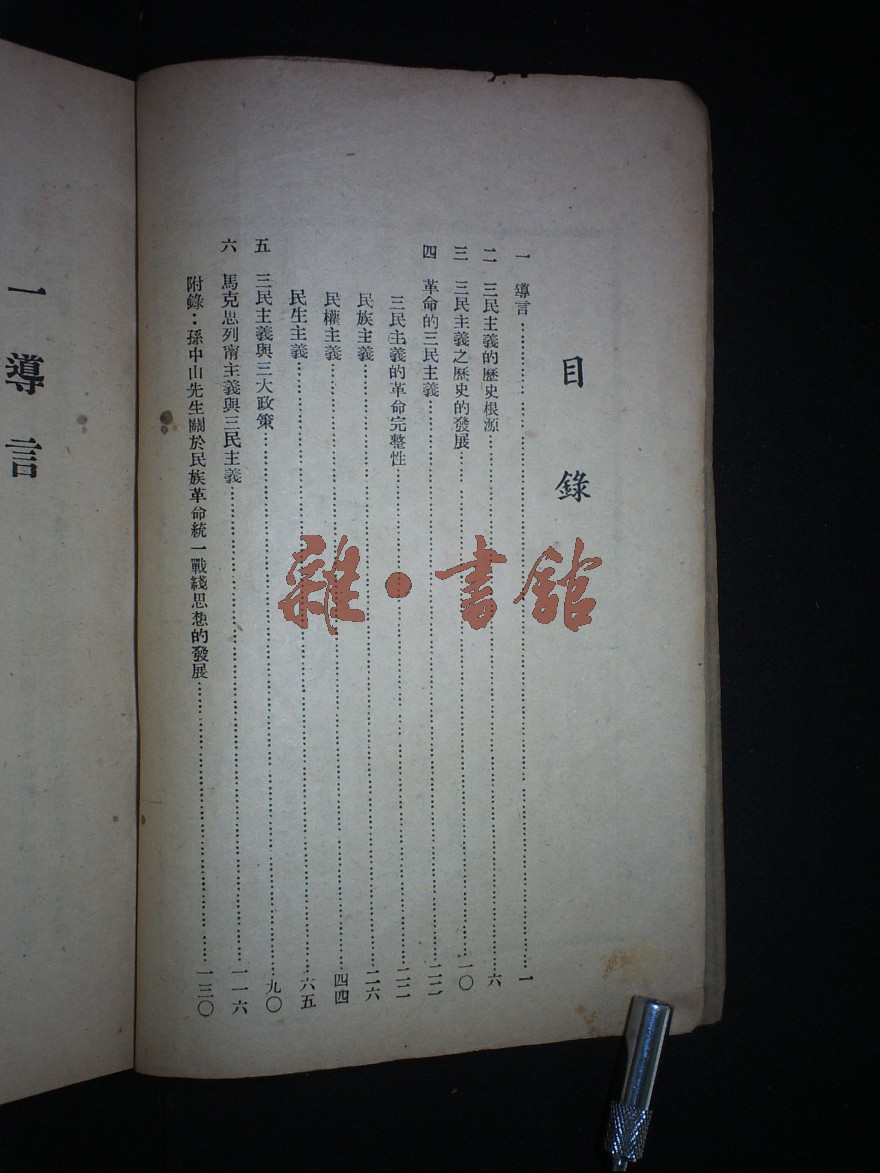 目錄
一 導言……一
二 三民主義的歷史根源……六
三 三民主義之歷史的發展……一〇
四 革命的三民主義……二二
三民主義的革命完整性……二二
民族主義……二六
民權主義……四四
民生主義……六五
五 三民主義與三大政策……九〇
六 馬克思列甯主義與三民主義……一一六
附錄：孫中山先生關於民族革命統一戰綫思想的發展……一三〇
一 導言
雜·書館